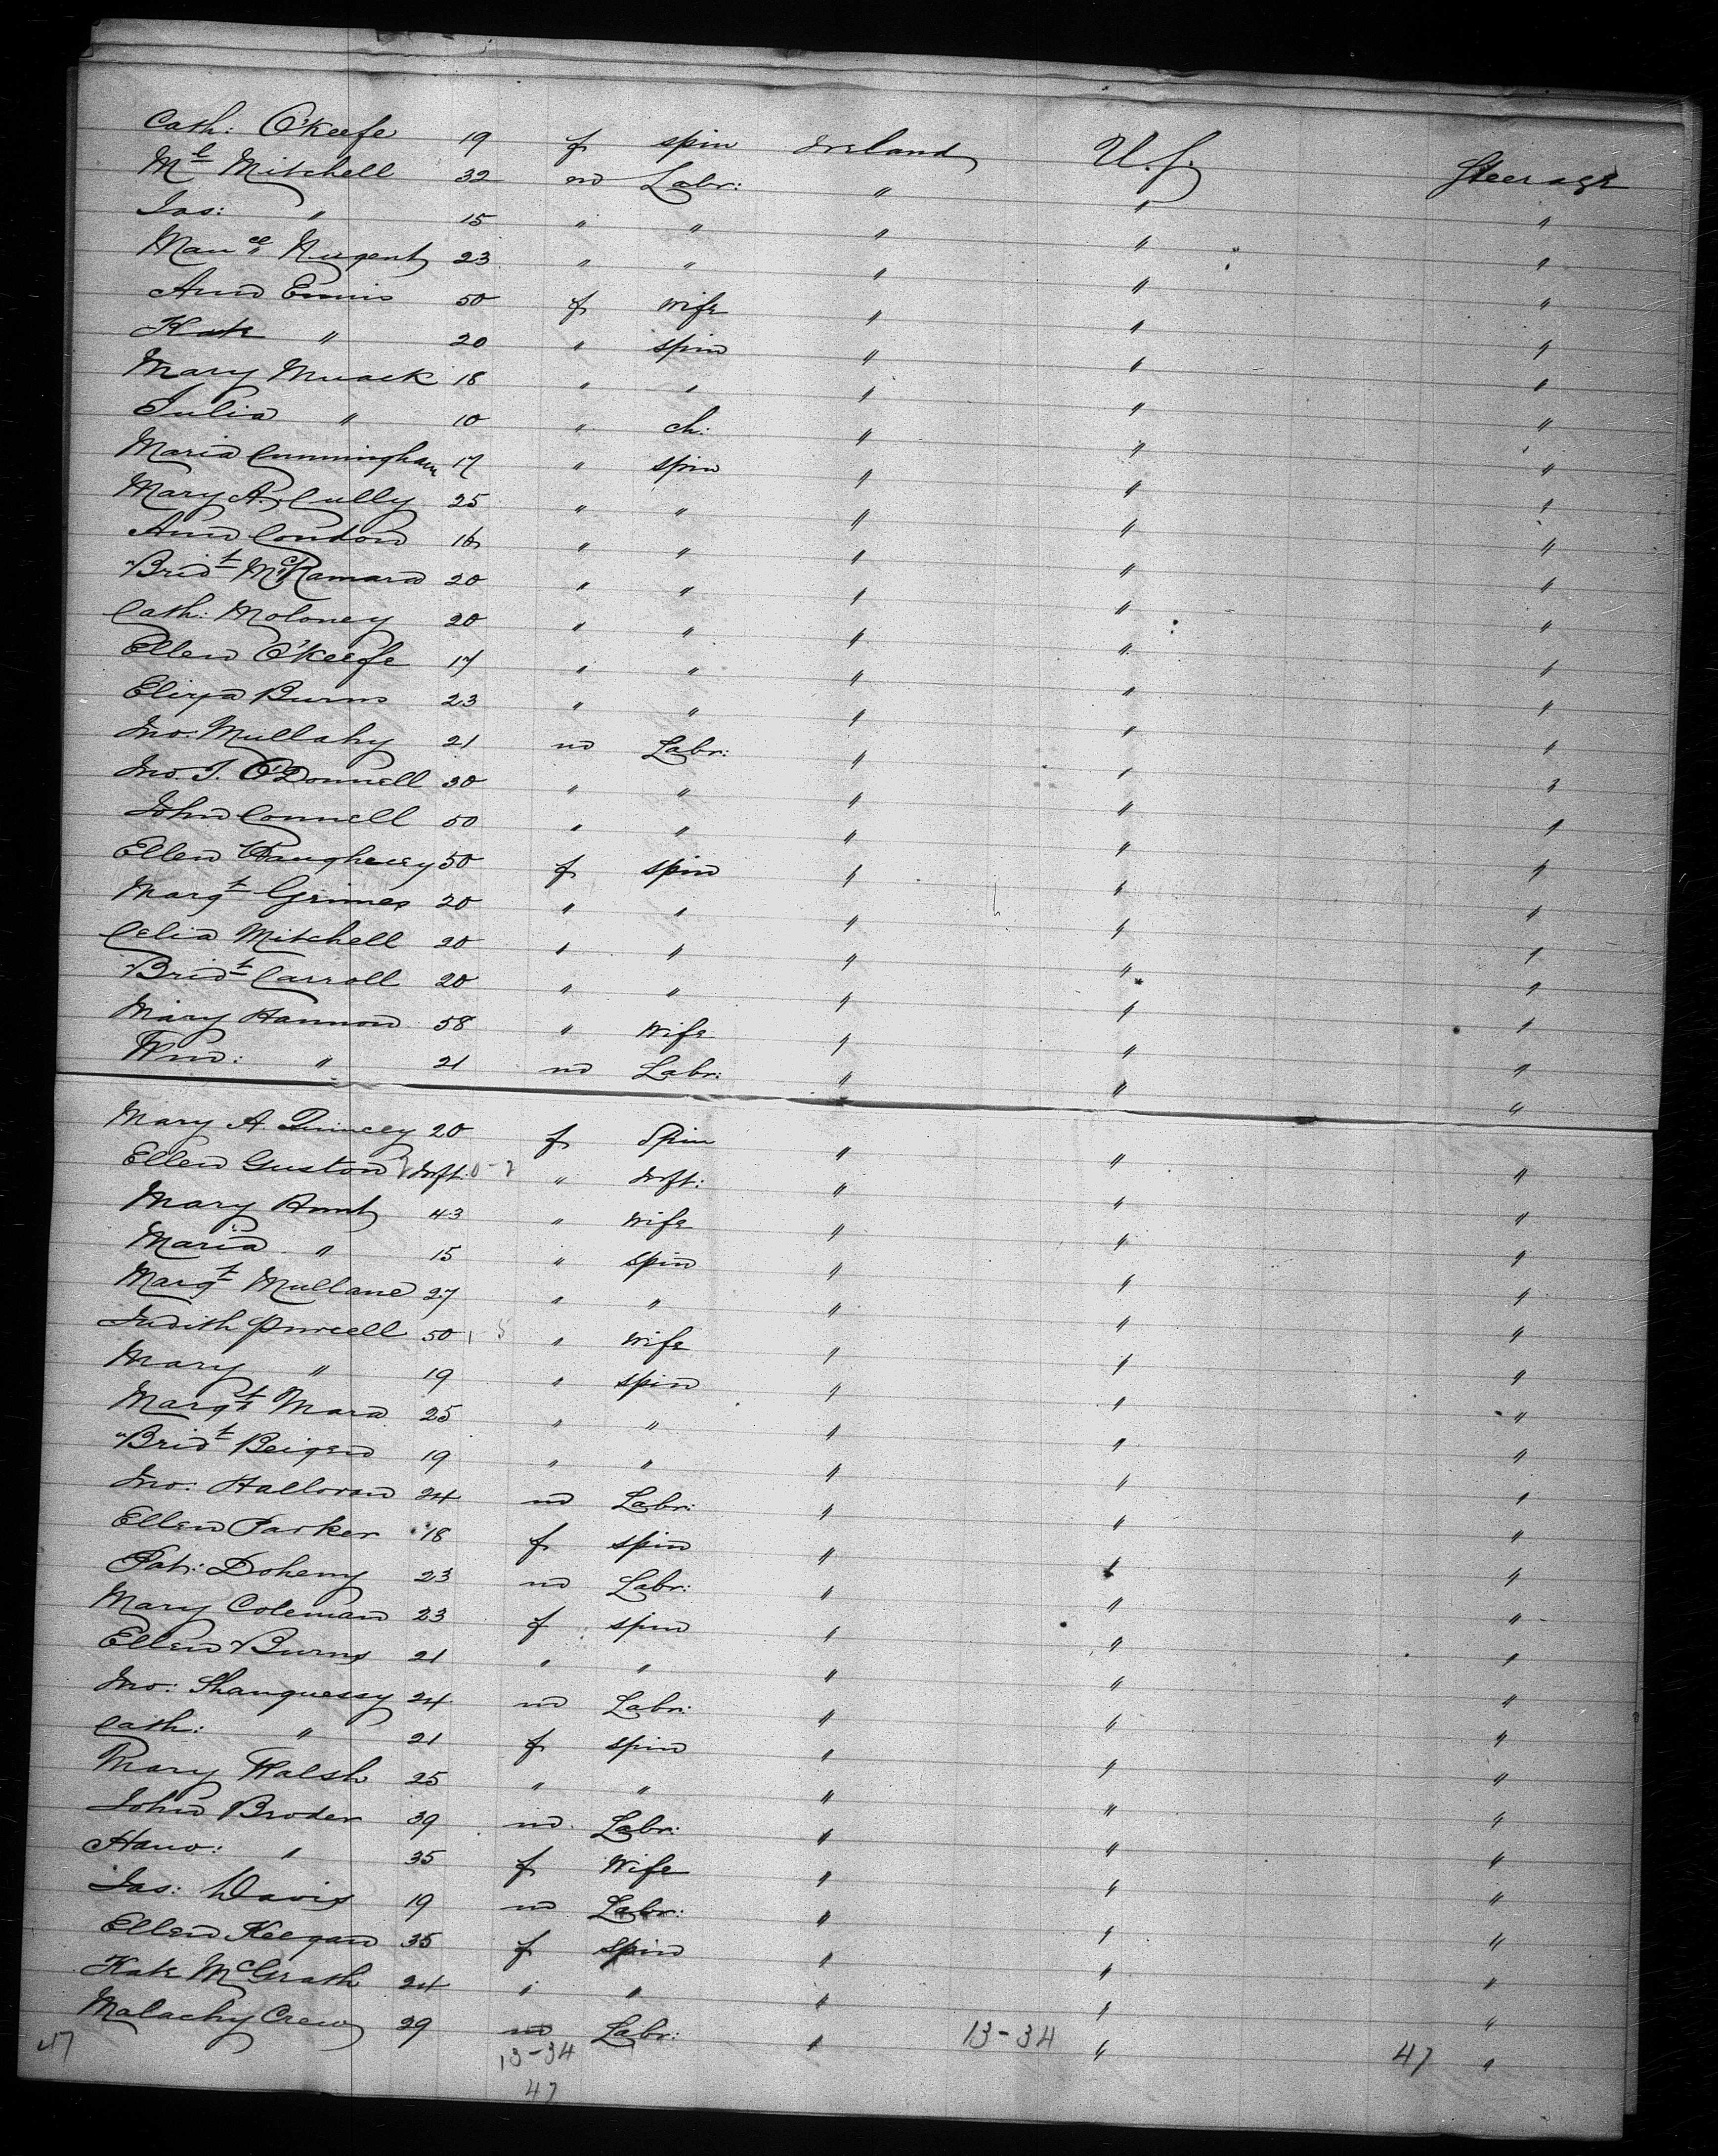 Cath: O'Keefe 19 f spin Ireland U.S. Steerage
Ml Mitchell 32 m Labr: " " "
Jas: " 15 " " " " "
Mauce Nugent 23 " " " " "
Ann Ennis 50 f Wife " " "
Kate " 20 " spin " " "
Mary Muack 18 " " " " "
Julia " 10 " ch: " " "
Maria Cunningham 17 " spin " " "
Mary A. Cully 25 " " " " "
Ann Condon 16 " " " " "
Bridt McNamara 20 " " " " "
Cath: Moloney 20 " " " " "
Ellen O'Keefe 17 " " " " "
Eliza Burns 23 " " " " "
Jno: Mullahy 21 m Labr: " " "
Jno. J. O'Donnell 30 " " " " "
John Connell 50 " " " " "
Ellen 50 f spin " " "
Margt Grimes 20 " " " " "
Celia Mitchell 20 " " " " "
Bridt Carroll 20 " " " " "
Mary Hannon 58 " Wife " " "
Wm: " 21 m Labr: " " "
Mary A. Quincey 20 f Spin " " "
Ellen Guston Inft. " Inft: " " "
Mary Hunt 43 " Wife " " "
Maria " 15 " spin " " "
Margt Mullane 27 " " " " "
Judith Purcell 50 " Wife " " "
Mary " 19 " spin " " "
Margt Mara 25 " " " " "
Bridt Beigen 19 " " " " "
Jno: Halloran 24 m Labr: " " "
Ellen Parker 18 f spin " " "
Pat: Doheny 23 m Labr: " " "
Mary Coleman 23 f spin " " "
Ellen Burns 21 " " " " "
Jno: Shauguessy 24 m Labr: " " "
Cath: " 21 f spin " " "
Mary Walsh 25 " " " " "
John Broder 39 m Labr: " " "
Hano: " 35 f Wife " " "
Jas: Davis 19 m Labr: " " "
Ellen Keegan 35 f Spin " " "
Kate McGrath 24 " " " " "
Malachy Crew 29 m Labr: " " "
47 13-34 13-34 47
47